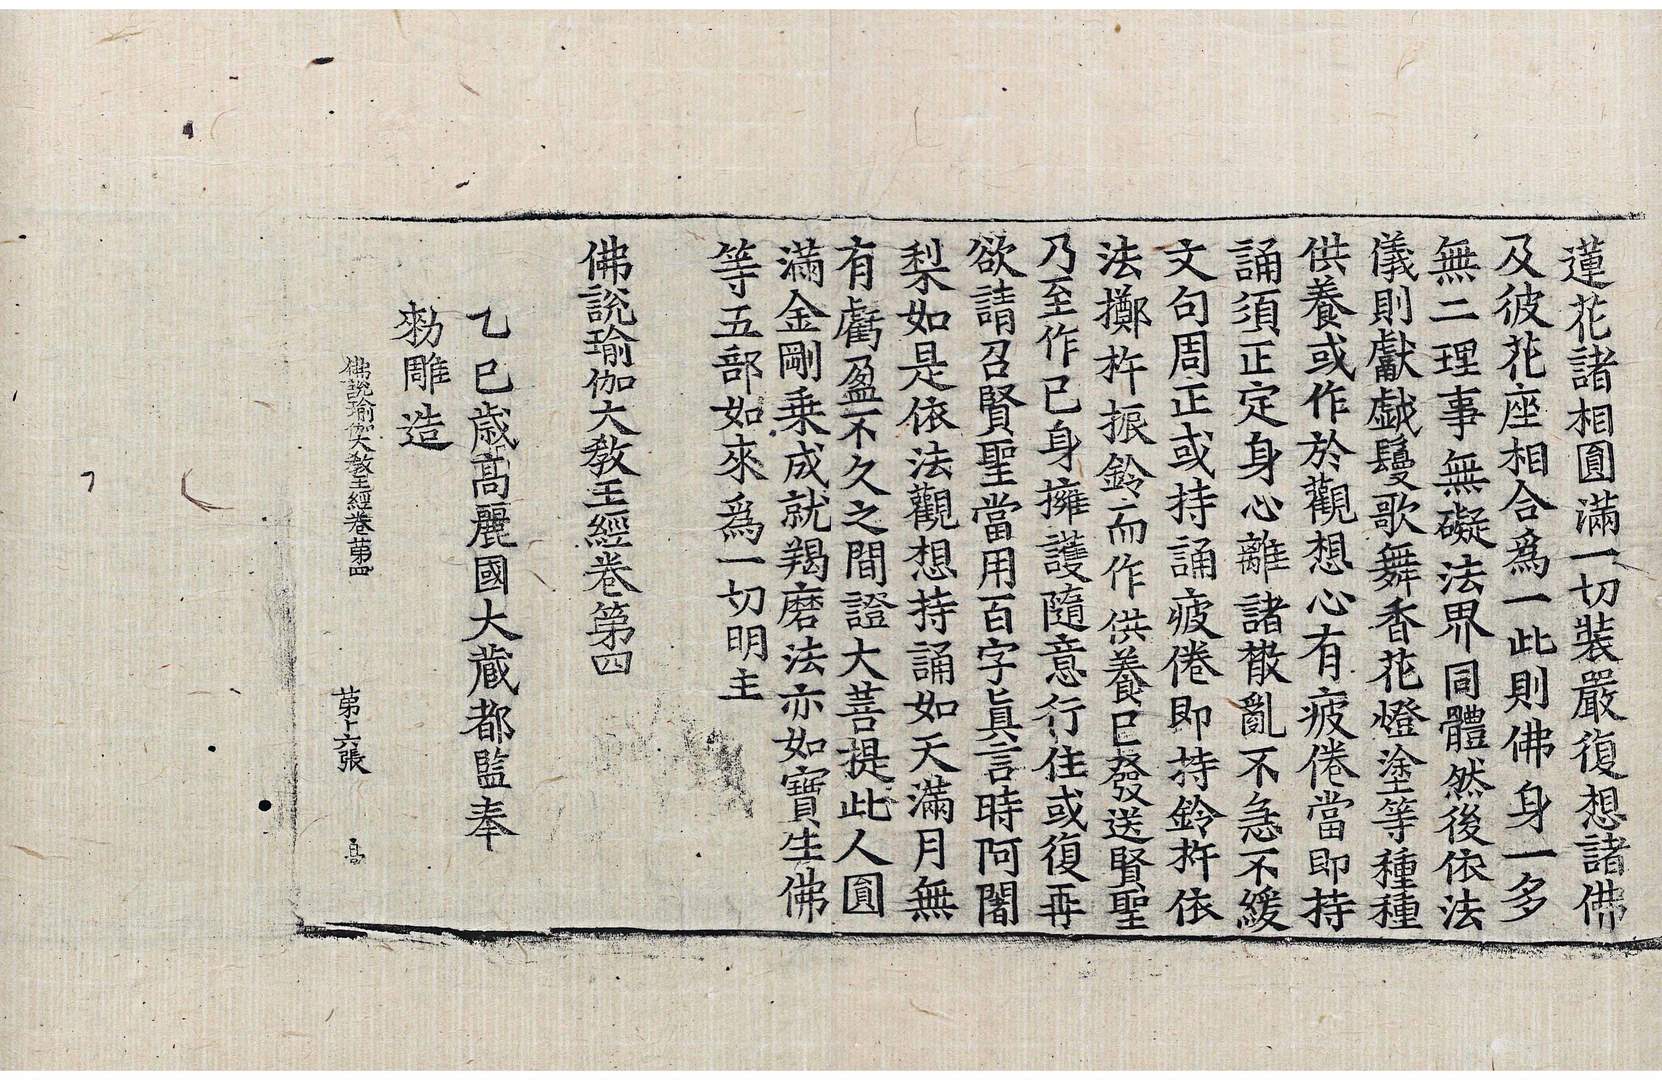 蓮花諸相圓滿一切裝嚴復想諸佛
及彼花座相合爲一此則佛身一多
無二理事無礙法界同體然後依法
儀則獻戱鬘歌舞香花燈塗等種種
供養或作於觀想心有疲倦當即持
誦須正定身心離諸散亂不急不緩
文句周正或持誦疲倦即持鈴杵依
法擲杵振鈴而作供養已發送賢聖
乃至作已身擁護隨意行住或復再
欲請召賢聖當用百字眞言時阿闍
梨如是依法觀想持誦如天滿月無
有虧盈不久之間證大菩提此人圓
滿金剛乗成就羯磨法亦如寶生佛
等五部如來爲一切明主
佛說瑜伽大教王經卷第四
乙巳歳高麗國大藏都監奉
勑雕造
佛說瑜伽大教王經卷第四 第十六張